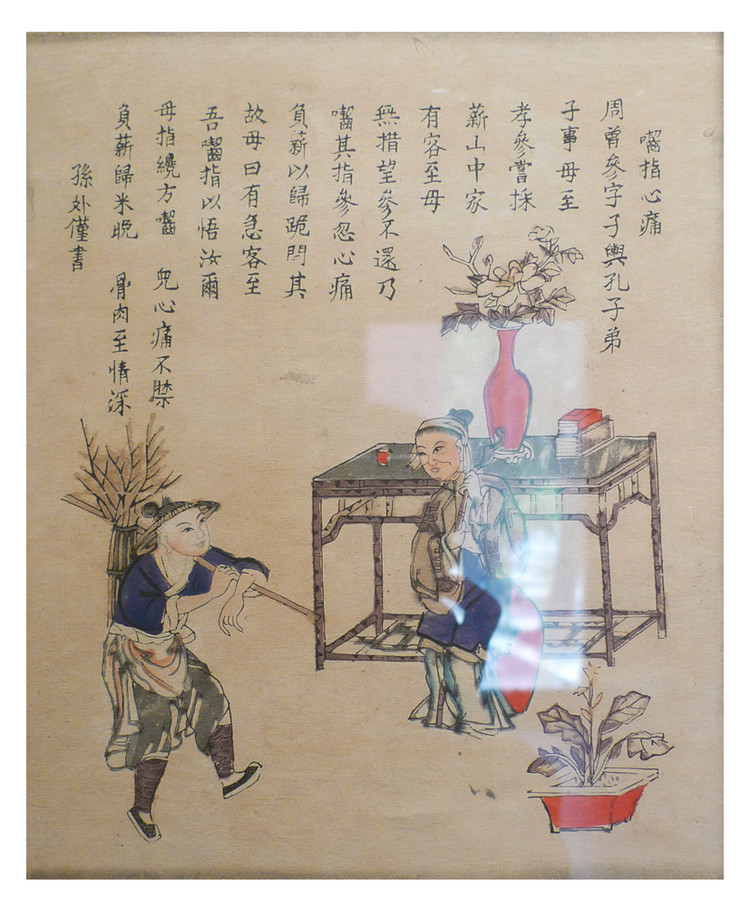 嚙指心痛
周曾參字子輿孔子弟
子事母至
孝參嘗採
薪山中家
有客至母
無措望參不還乃
嚙其指參忽心痛
負薪以歸跪問其
故母曰有急客至
吾嚙指以悟汝爾
母指纔方嚙 兒心痛不禁
負薪歸來晚 骨肉至情深
孫外僅書